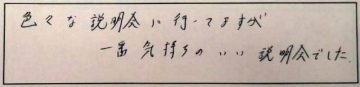 色々な説明会に行ってますが
一番気持ちのいい説明会でした。